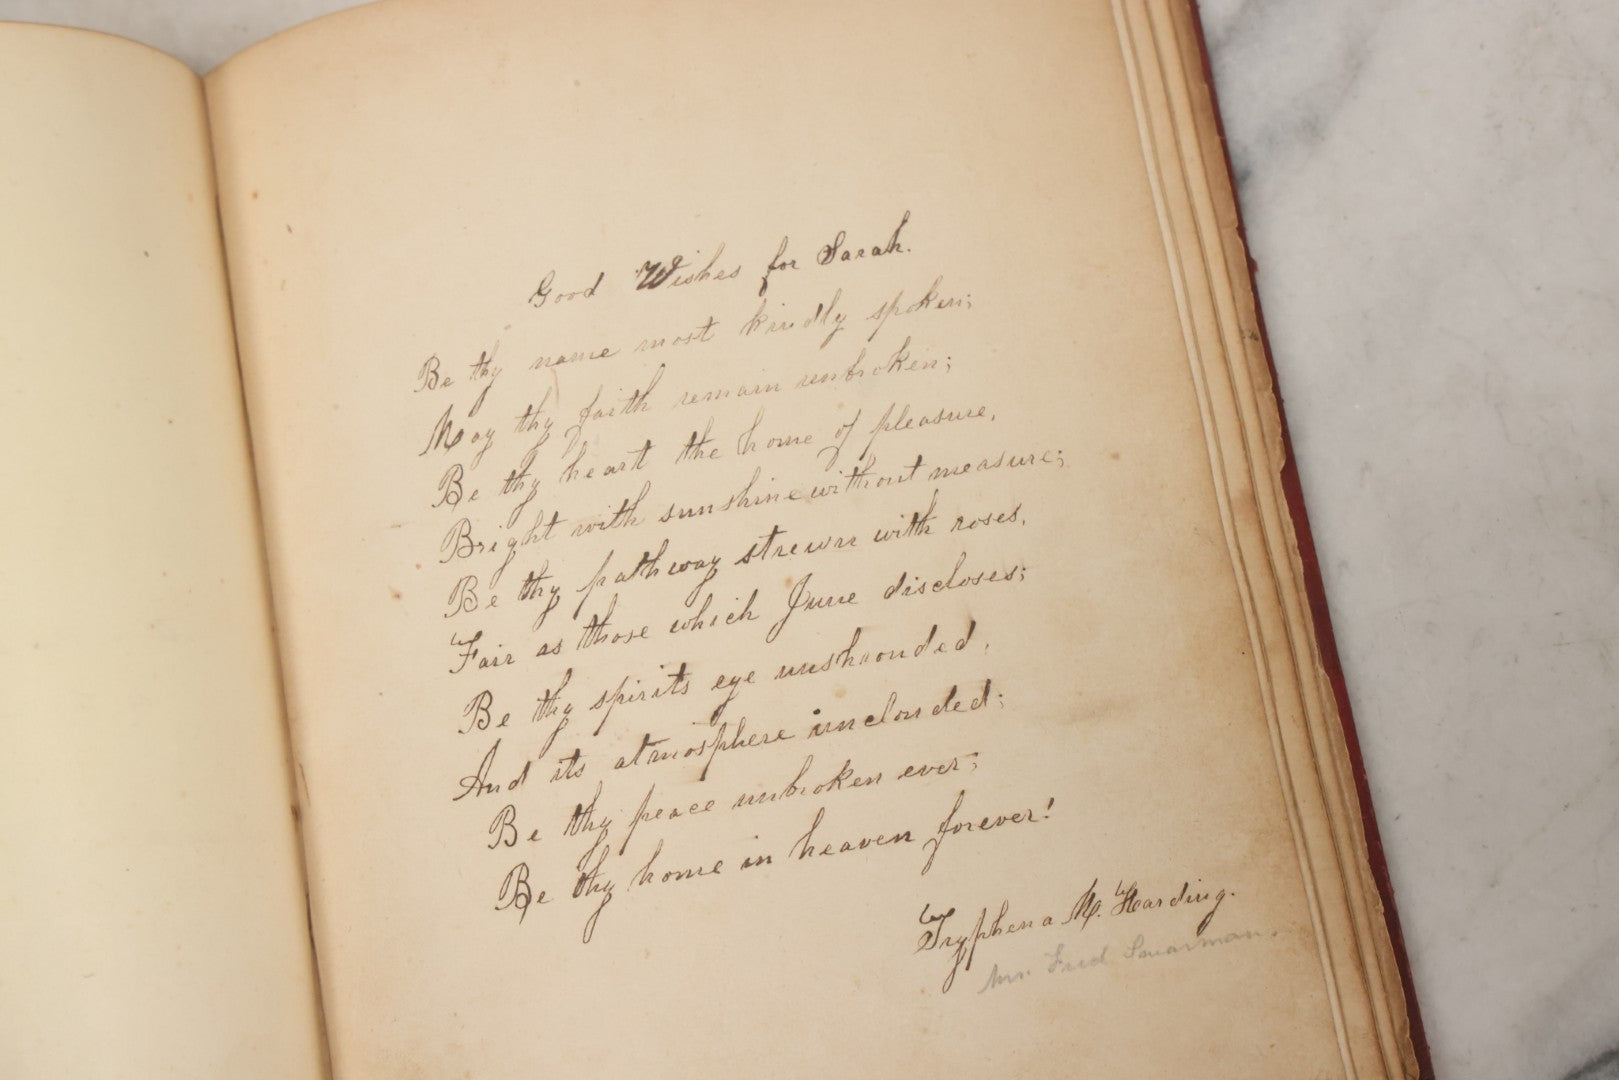 Good Wishes for Sarah.
Be thy name most kindly spoken;
May thy faith remain unbroken;
Be thy heart the home of pleasure,
Bright with sunshine without measure;
Be thy pathway strewn with roses,
Fair as those which June discloses;
Be thy spirits eye unshrouded,
And its atmosphere unclouded;
Be thy peace unbroken ever;
Be thy home in heaven forever!
Tryphena M. Harding.
Fred